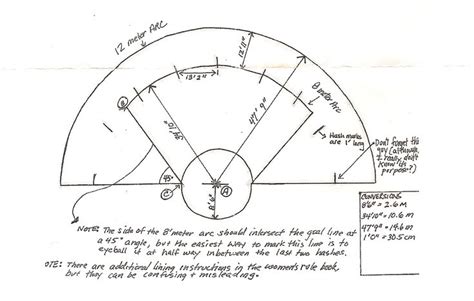 12 meter ARC
12'11"
13'2"
8 meter Arc
B
34'10"
47' 9"
Hash marks
are 1' long
Don't forget the
guy (although
I really don't
know its
purpose?)
45°
C
A
8'6"
CONVERSIONS
8'6" = 2.6 m
34'10" = 10.6 m
47'9" = 14.6 m
1'0" = 30.5 cm
NOTE: The side of the 8'meter arc should intersect the goal line at
a 45° angle, but the easiest way to mark this line is to
eyeball it at half way inbetween the last two hashes.
OTE: There are additional lining instructions in the womens rule book,
but they can be confusing + misleading.